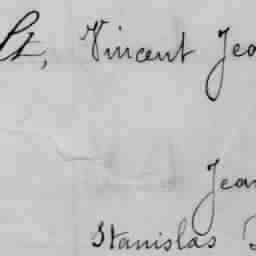 St, Vincent Jea
Jean
Stanislas